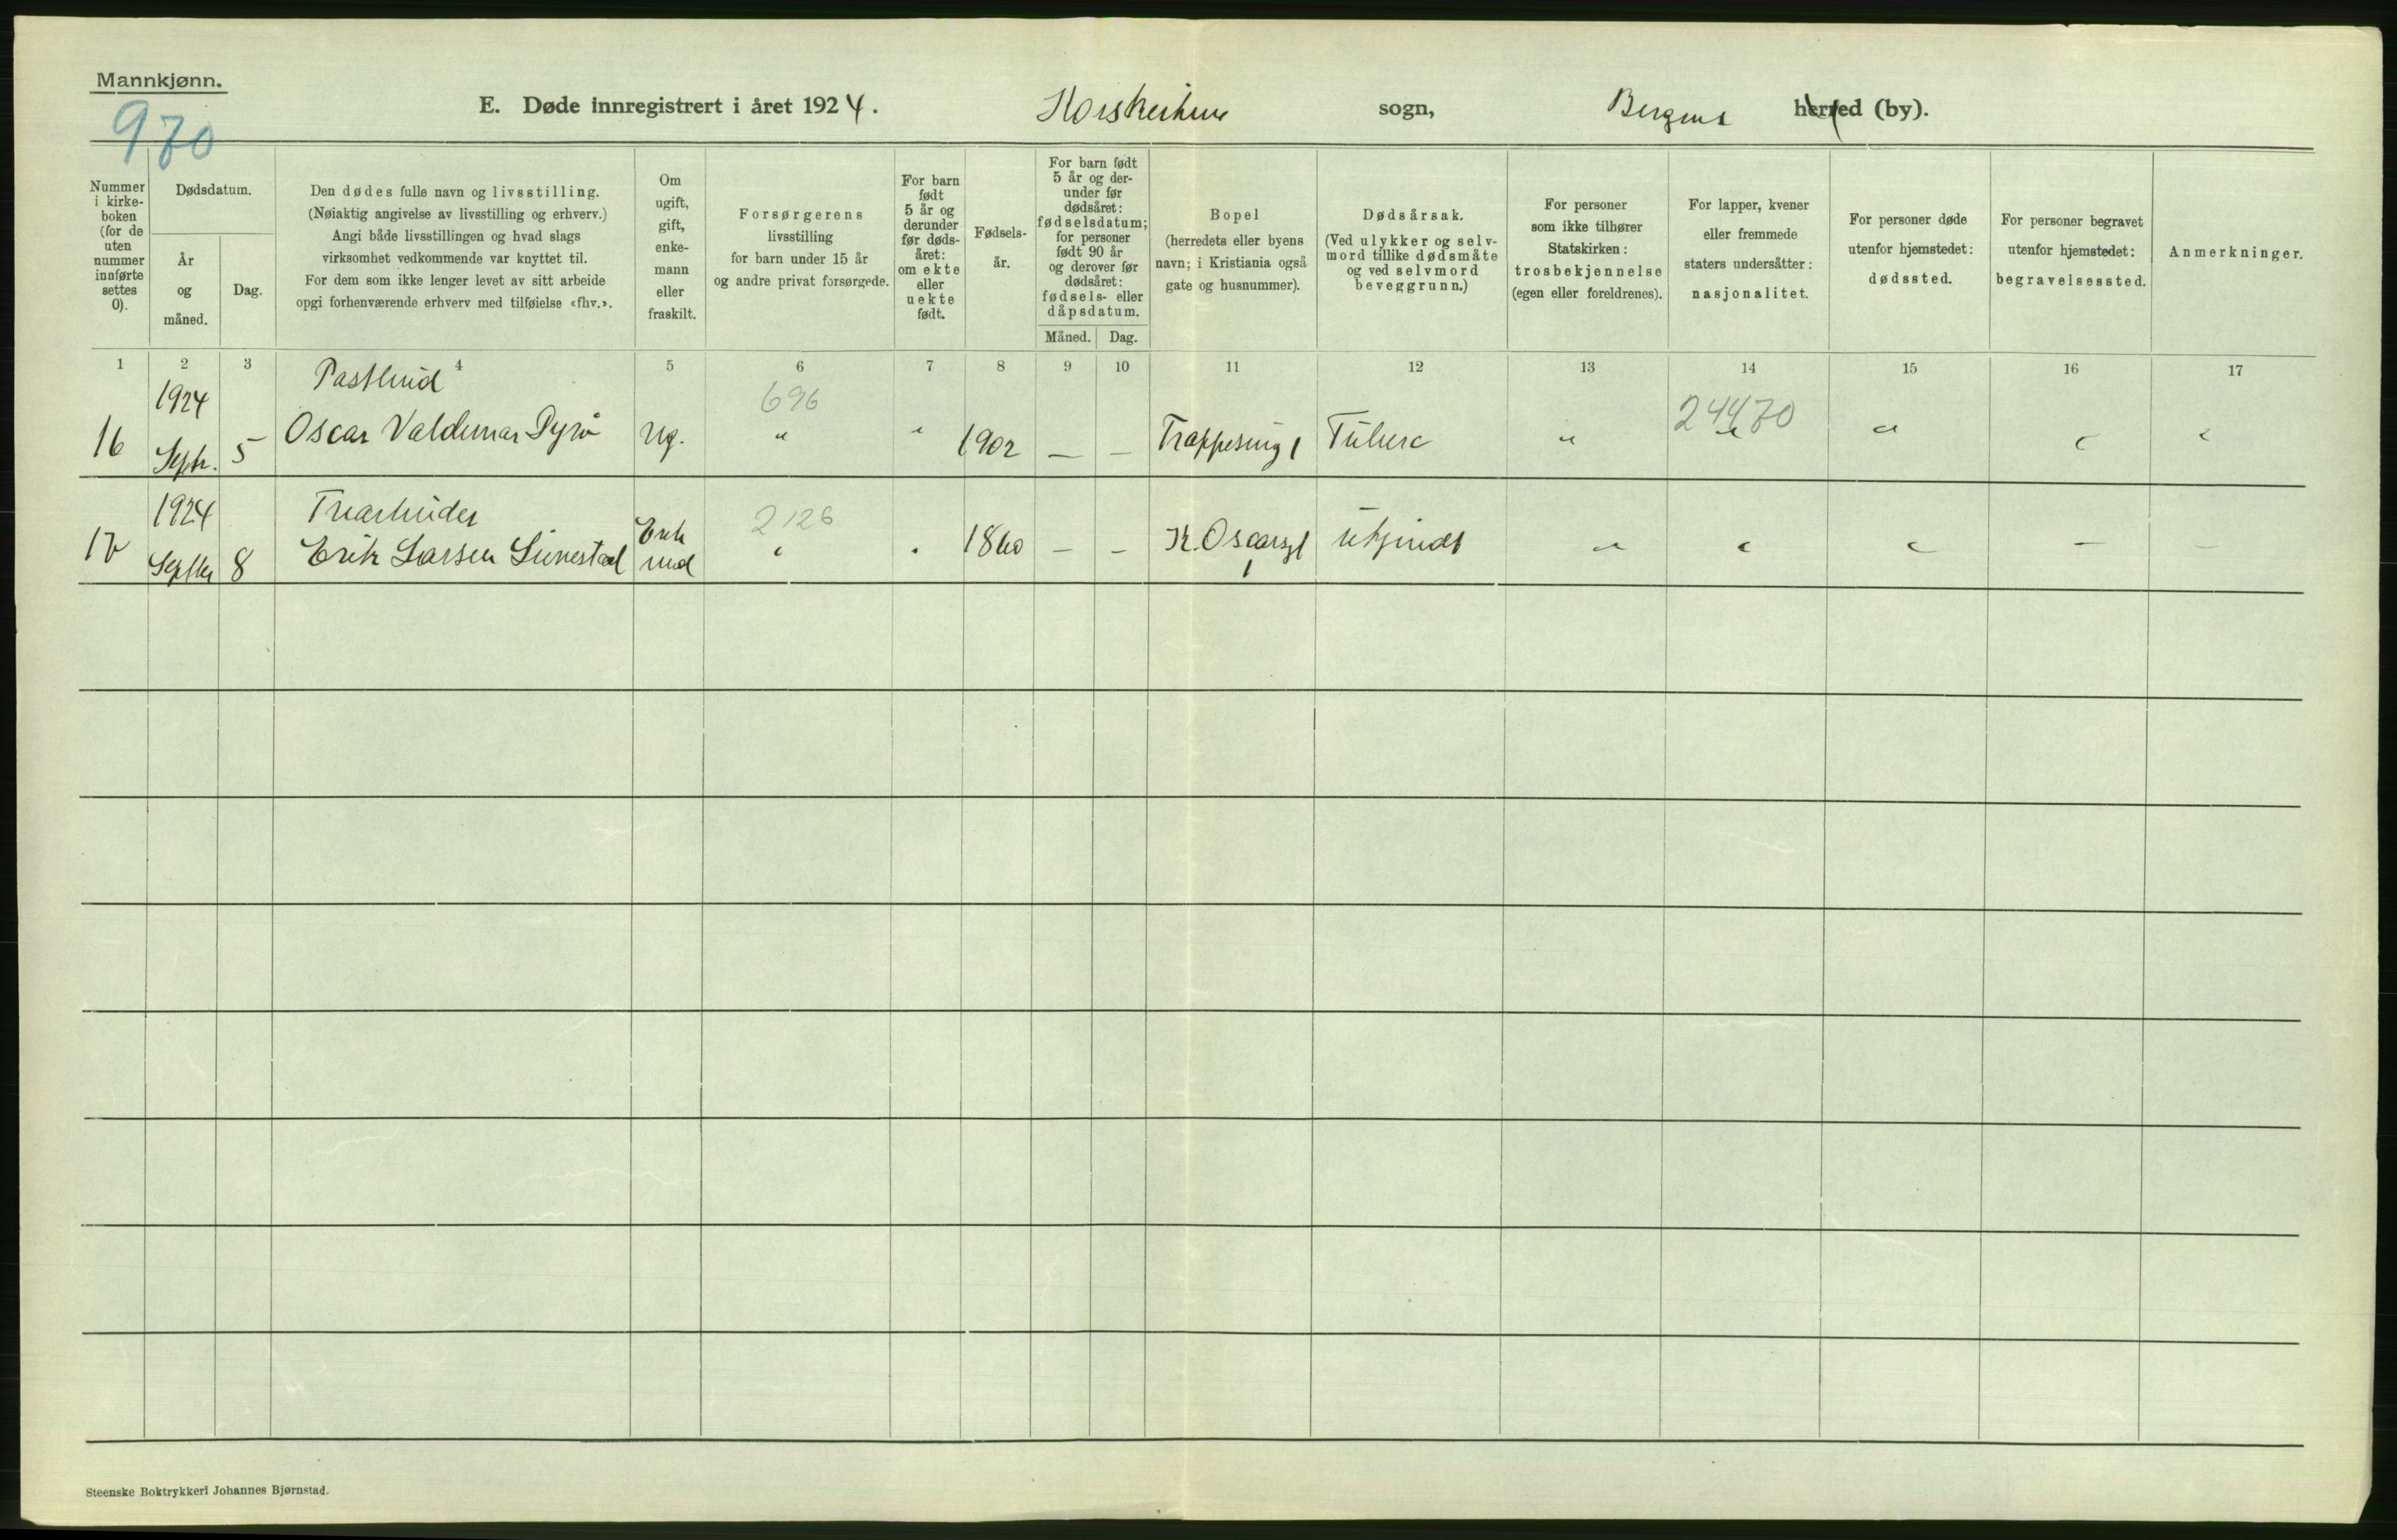 Mannkjønn.
970
E. Døde innregistrert i året 1924.
Korskirkens sogn,
Bergens herred (by).
Nummer
i kirke-
boken
(for de
uten
nummer
innførte
settes
0).
Dødsdatum.
År
og
måned.
Dag.
Den dødes fulle navn og livsstilling.
(Nøiaktig angivelse av livsstilling og erhverv.)
Angi både livsstillingen og hvad slags
virksomhet vedkommende var knyttet til.
For dem som ikke lenger levet av sitt arbeide
opgi forhenværende erhverv med tilføielse «fhv.».
Om
ugift,
gift,
enke-
mann
eller
fraskilt.
Forsørgerens
livsstilling
for barn under 15 år
og andre privat forsørgede.
For barn
født
5 år og
derunder
før døds-
året:
om ekte
eller
uekte
født.
Fødsels-
år.
For barn født
5 år og der-
under før
dødsåret:
fødselsdatum;
for personer
født 90 år
og derover før
dødsåret:
fødsels- eller
dåpsdatum.
Måned. Dag.
Bopel
(herredets eller byens
navn; i Kristiania også
gate og husnummer).
Dødsårsak.
(Ved ulykker og selv-
mord tillike dødsmåte
og ved selvmord
beveggrunn.)
For personer
som ikke tilhører
Statskirken:
trosbekjennelse
(egen eller foreldrenes).
For lapper, kvener
eller fremmede
staters undersåtter:
nasjonalitet.
For personer døde
utenfor hjemstedet:
dødssted.
For personer begravet
utenfor hjemstedet:
begravelsessted.
Anmerkninger.
1 2 3 4 5 6 7 8 9 10 11 12 13 14 15 16 17
1924 Postbud 696 24470
16 Septr. 5 Oscar Valdemar Dyrø Ug. " " 1902 — — Trappesmug 1 Tuberc " " " " "
1924 Trearbeider 2126
17 Septbr 8 Erik Larsen Lunestad Enke " " 1860 — — K. Oscarsgt Ukjendt " " " — —
md 1
Steenske Boktrykkeri Johannes Bjørnstad.